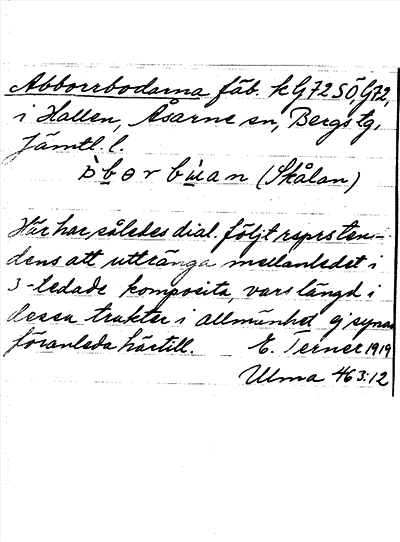 Abborrbodarna fäb. k G72 SÖ, G72,
i Hallen, Åsarne sn, Bergs tg,
Jämtl. l.
àberbùan (Skålan)
Här har således dial. följt ten-
dens att uttränga mellanledet i
3-ledade komposita, vars längd i
dessa trakter i allmänhet synas
föranleda härtill. E. Terner 1919
Ulma 463:12